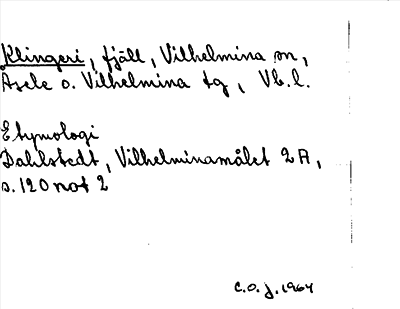 Klingeri, fjäll, Vilhelmina sn,
Åsele o. Vilhelmina tg, Vb.l.
Etymologi
Dahlstedt, Vilhelminamålet 2A,
s. 120 not 2
C.O.J. 1964